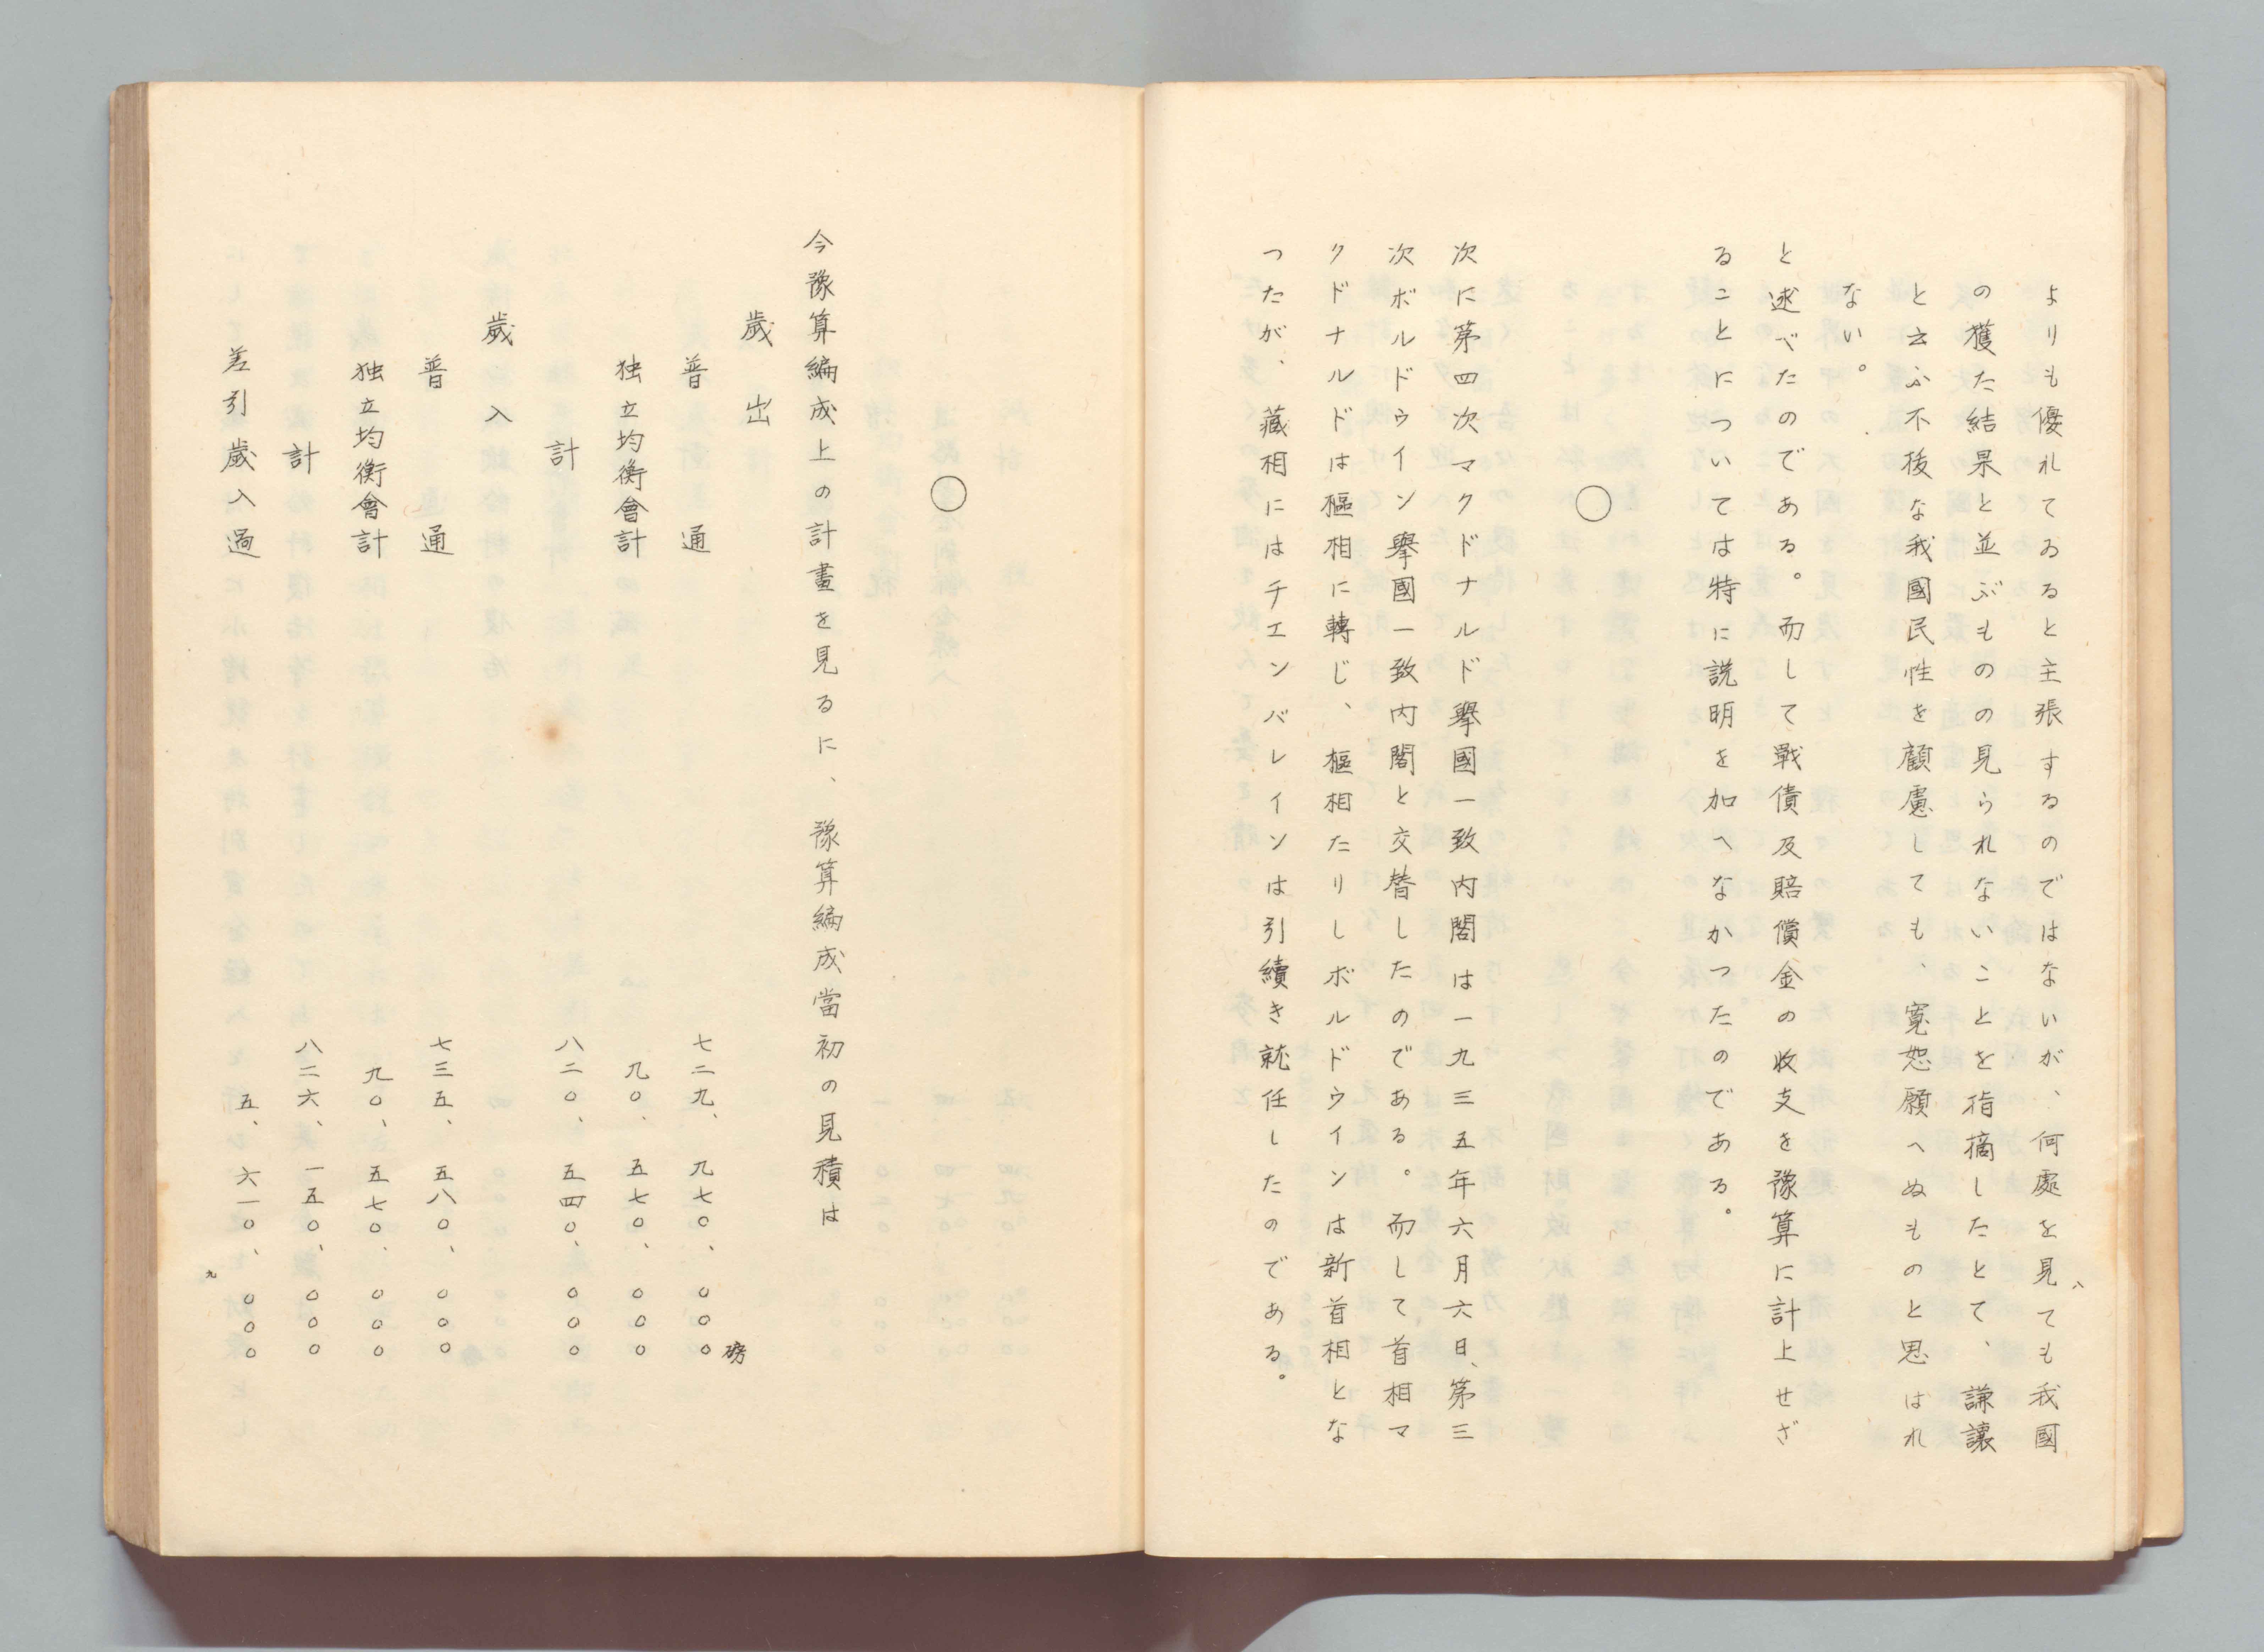 よりも優れてゐると主張するのではないが、何處を見ても我國
の獲た結果と並ぶものの見られないことを指摘したとて、謙讓
と云ふ不後な我國民性を顧慮しても、寛恕願へぬものと思はれ
ない。
と述べたのである。而して戰債及賠償金の收支を豫算に計上せざ
ることについては特に説明を加へなかつたのである。
○
次に第四次マクドナルド擧國一致内閣は一九三五年六月六日、第三
次ボルドウイン擧國一致内閣と交替したのである。而して首相マ
クドナルドは樞相に轉じ、樞相たりしボルドウインは新首相とな
つたが、藏相にはチエンバレインは引續き就任したのである。
八
○
今豫算編成上の計畫を見るに、豫算編成當初の見積は
歲出
普通 七二九、九七〇、〇〇〇磅
独立均衡會計 九〇、五七〇、〇〇〇
計 八二〇、五四〇、〇〇〇
歲入
普通 七三五、五八〇、〇〇〇
独立均衡會計 九〇、五七〇、〇〇〇
計 八二六、一五〇、〇〇〇
差引歲入過 五、六一〇、〇〇〇
九